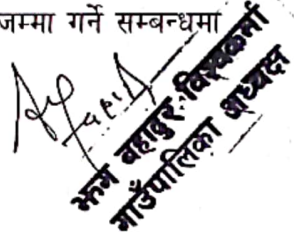 जम्मा गर्ने सम्बन्धमा
झग बहादुर विश्वकर्मा
गाउँपालिका अध्यक्ष